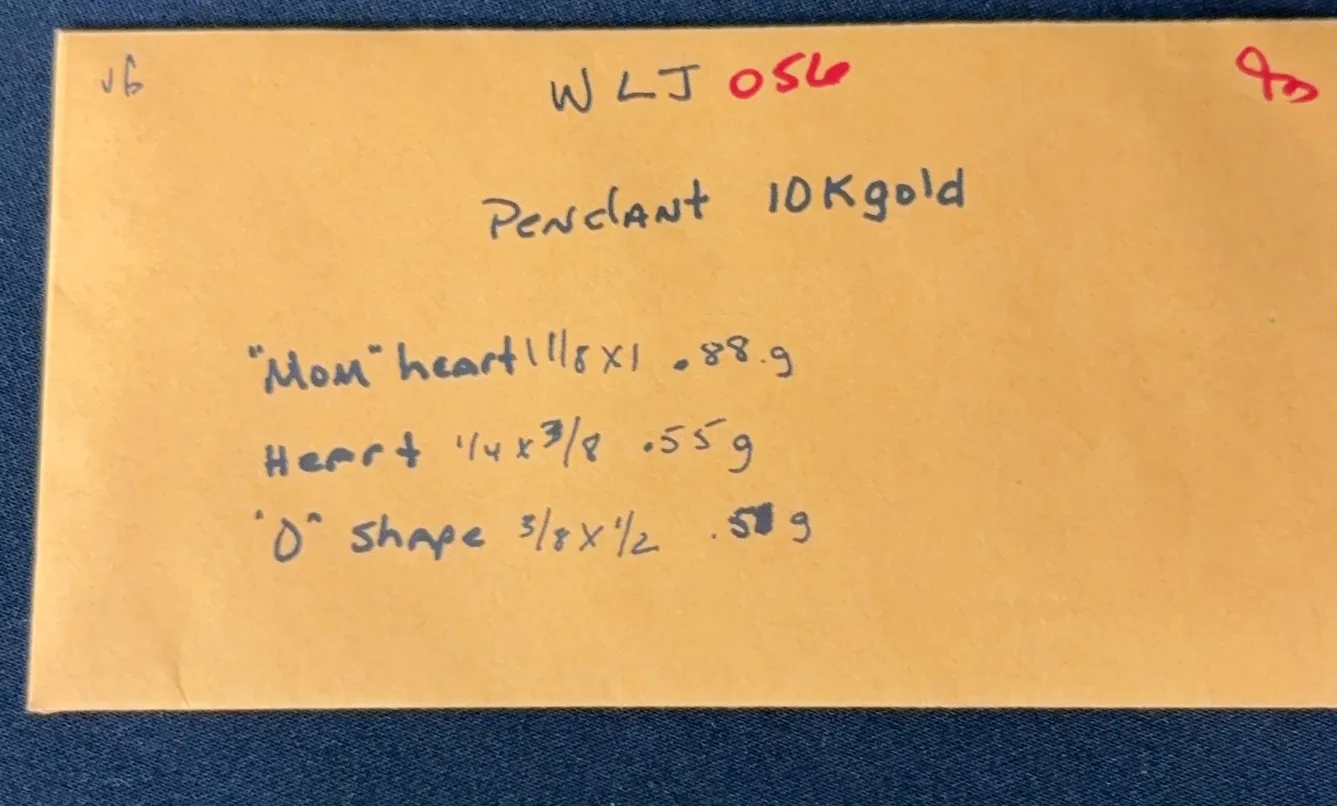 vb WLJ 056
Pendant 10K gold
"Mom" heart 1 1/8 x 1 .88.g
Heart 1/4 x 3/8 .55g
"O" shape 3/8 x 1/2 g